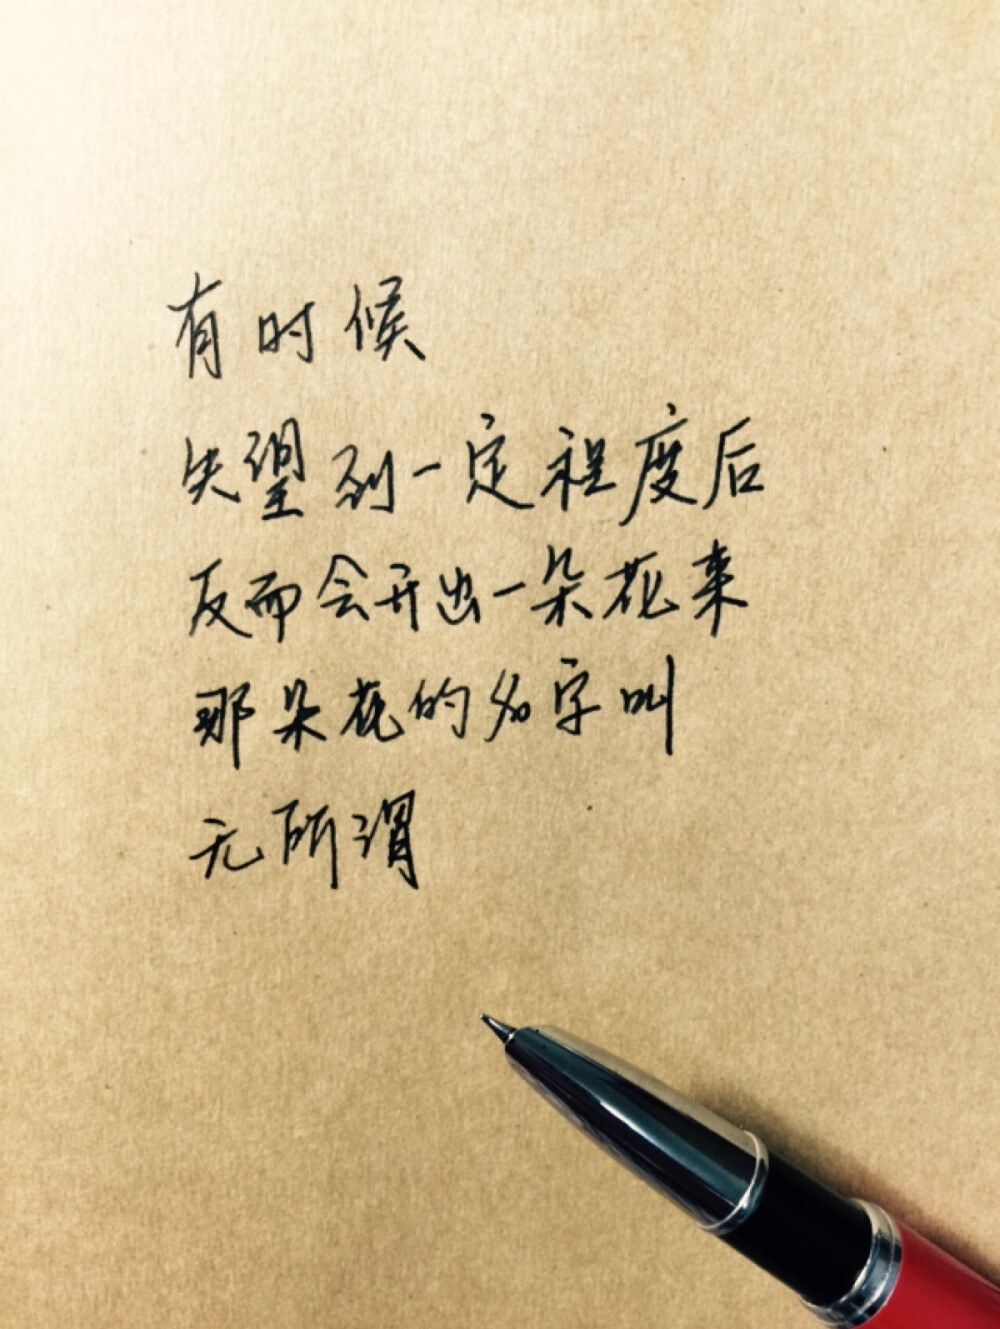 有时候
失望到一定程度后
反而会开出一朵花来
那朵花的名字叫
无所谓